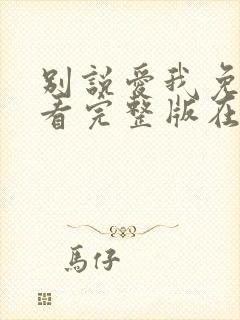 別說愛我免
看完整版在
馬仔